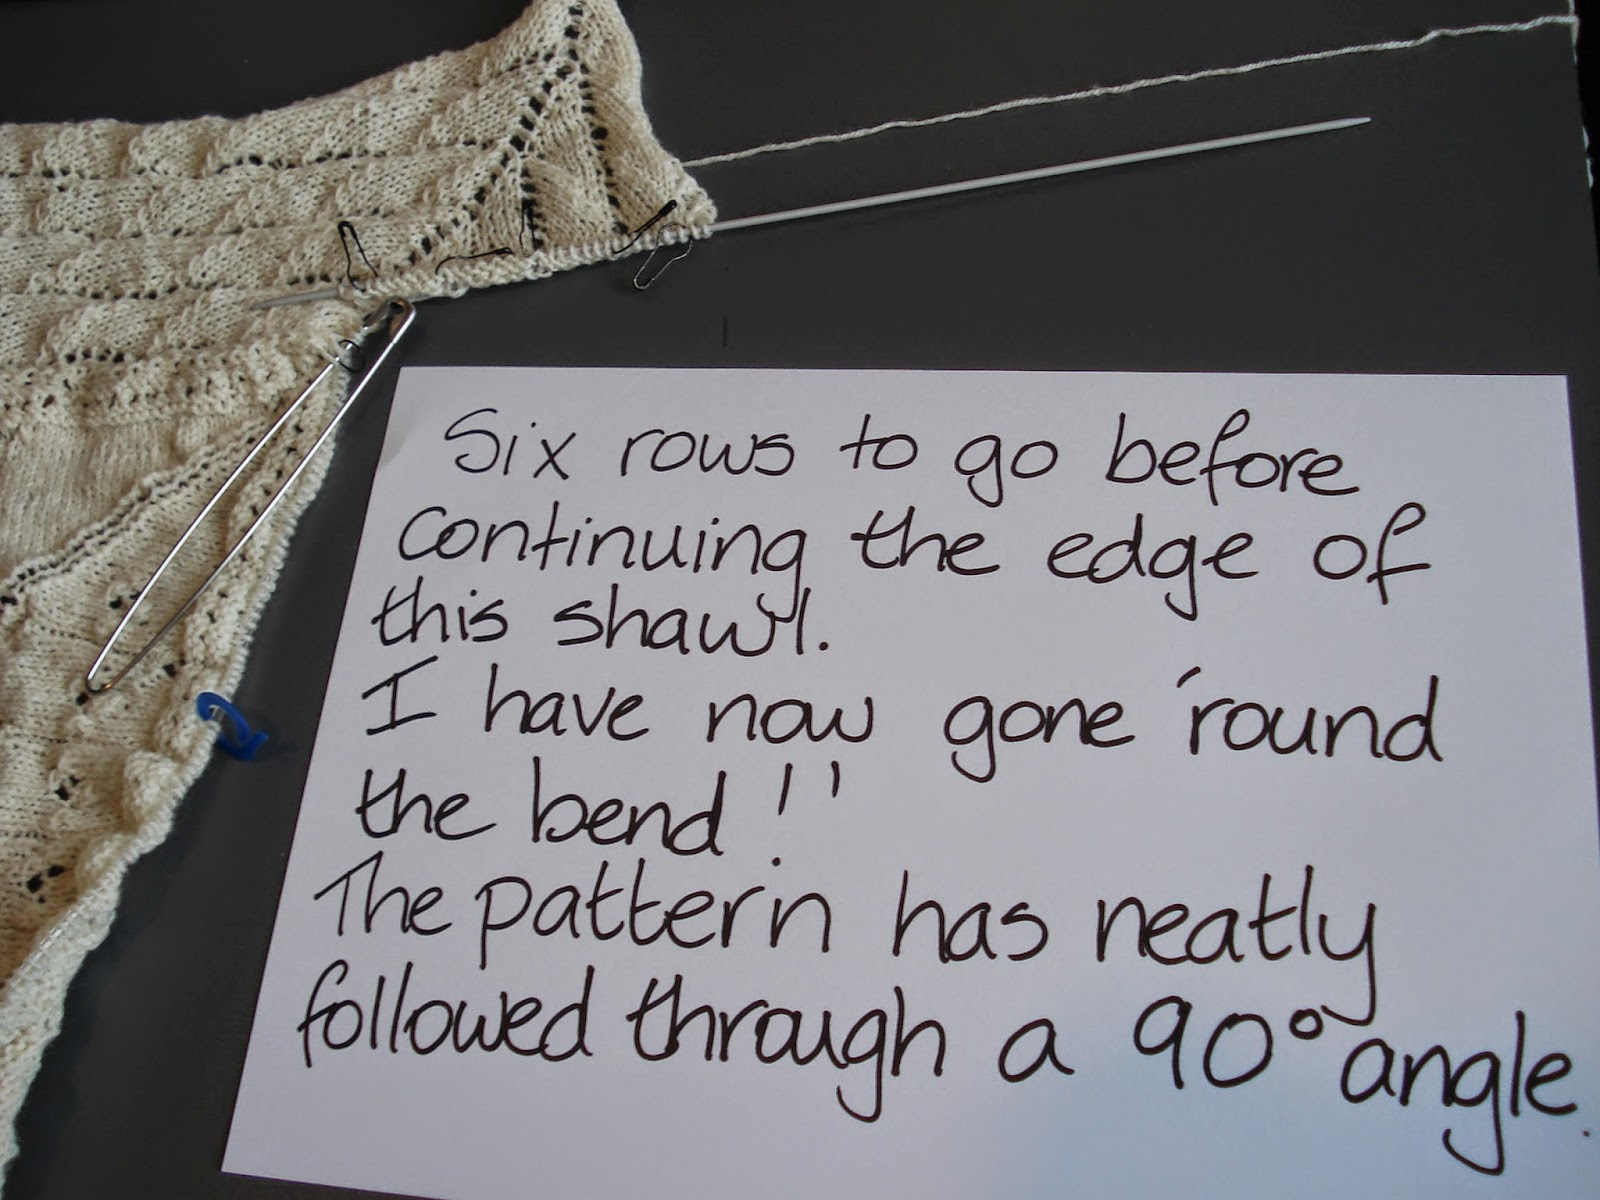 Six rows to go before
continuing the edge of
this shawl.
I have now gone 'round
the bend!!
The pattern has neatly
followed through a 90° angle.